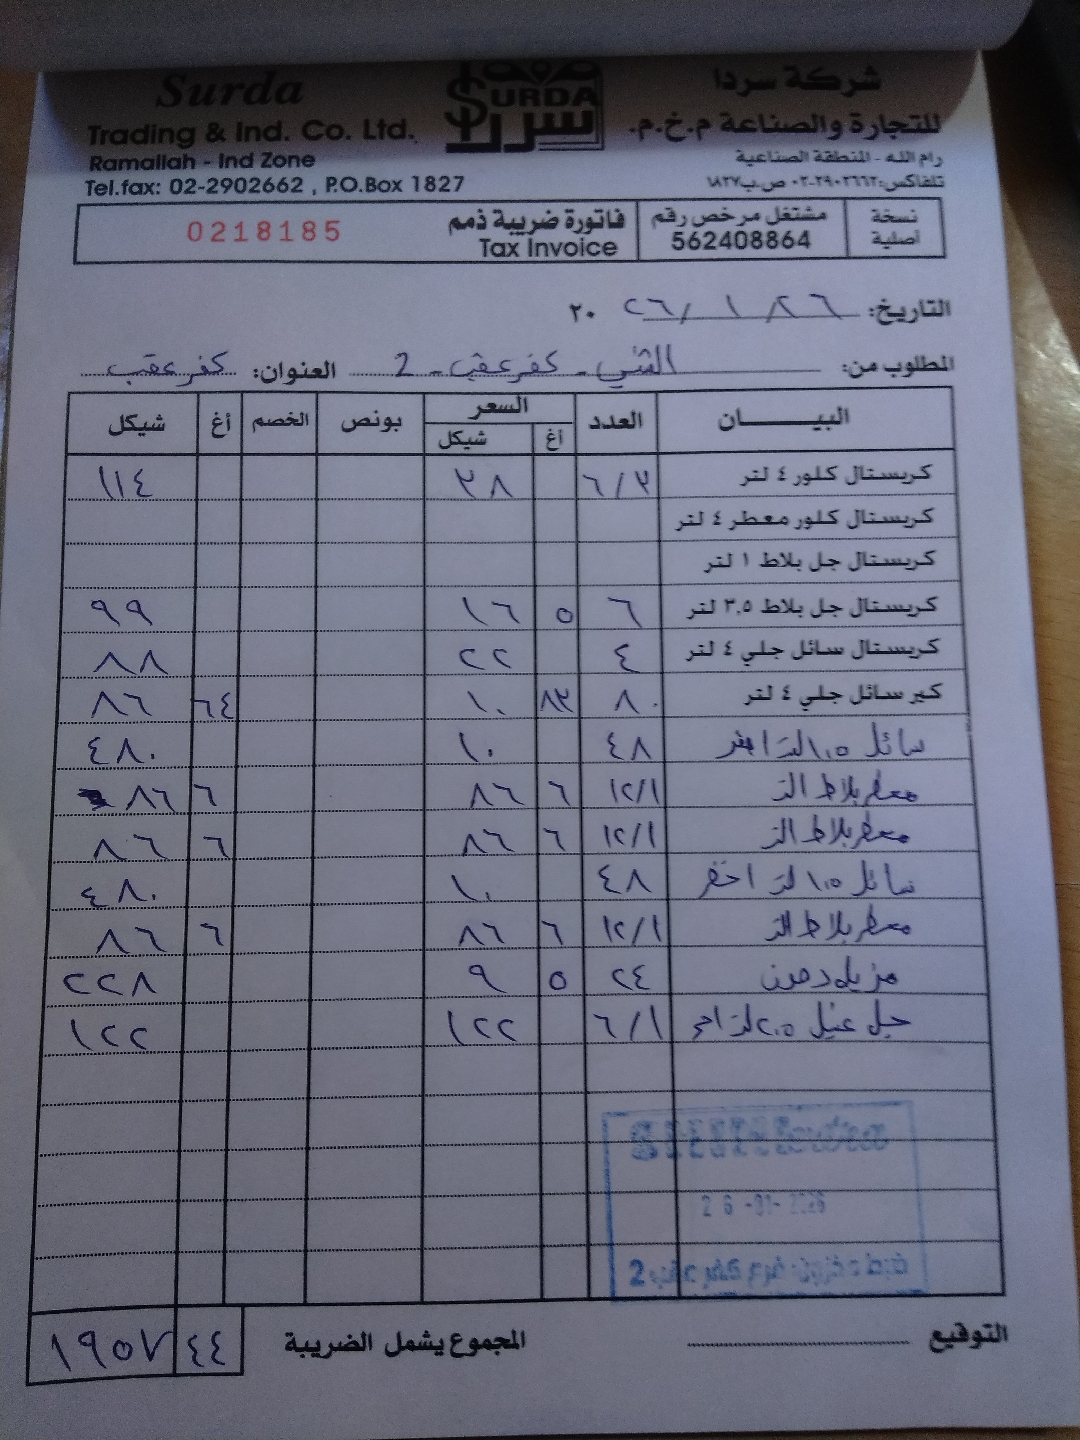 Surda شركة سردا
Trading & Ind. Co. Ltd. SURDA سردا للتجارة والصناعة م.خ.م.
Ramallah - Ind Zone رام الله - المنطقة الصناعية
Tel.fax: 02-2902662 , P.O.Box 1827 تلفاكس: ٠٢-٢٩٠٢٦٦٢ ص.ب ١٨٢٧
نسخة أصلية مشتغل مرخص رقم 562408864 فاتورة ضريبة ذمم Tax Invoice 0218185
التاريخ: ٢٦ / ١ / ٢٠٢٦
المطلوب من: الشني - كفر عقب - 2 العنوان: كفر عقب
البيـــان العدد السعر بونص الخصم أغ شيكل
أغ شيكل
كريستال كلور ٤ لتر ٦/٣ ٣٨ ١١٤
كريستال كلور معطر ٤ لتر
كريستال جل بلاط ١ لتر
كريستال جل بلاط ٣.٥ لتر ٦ ٥ ١٦ ٩٩
كريستال سائل جلي ٤ لتر ٤ ٢٢ ٨٨
كير سائل جلي ٤ لتر ٨ ٨٣ ١٠ ٦٤ ٨٦
سائل ١.٥ لتر ٤٨ ١٠ ٤٨٠
معطر بلاط ١لتر ١٢/١ ٦ ٨٦ ٦ ٨٦
معطر بلاط ١لتر ١٢/١ ٦ ٨٦ ٦ ٨٦
سائل ١.٥ لتر اخضر ٤٨ ١٠ ٤٨٠
معطر بلاط ١لتر ١٢/١ ٦ ٨٦ ٦ ٨٦
مزيل دهون ٢٤ ٥ ٩ ٢٢٨
جل غسيل ٢.٥ لتر ٦/١ ١٢٢ ١٢٢
26-01-2026
ضبط مخزون فرع كفر عقب 2
التوقيع المجموع يشمل الضريبة ٤٤ ١٩٥٧